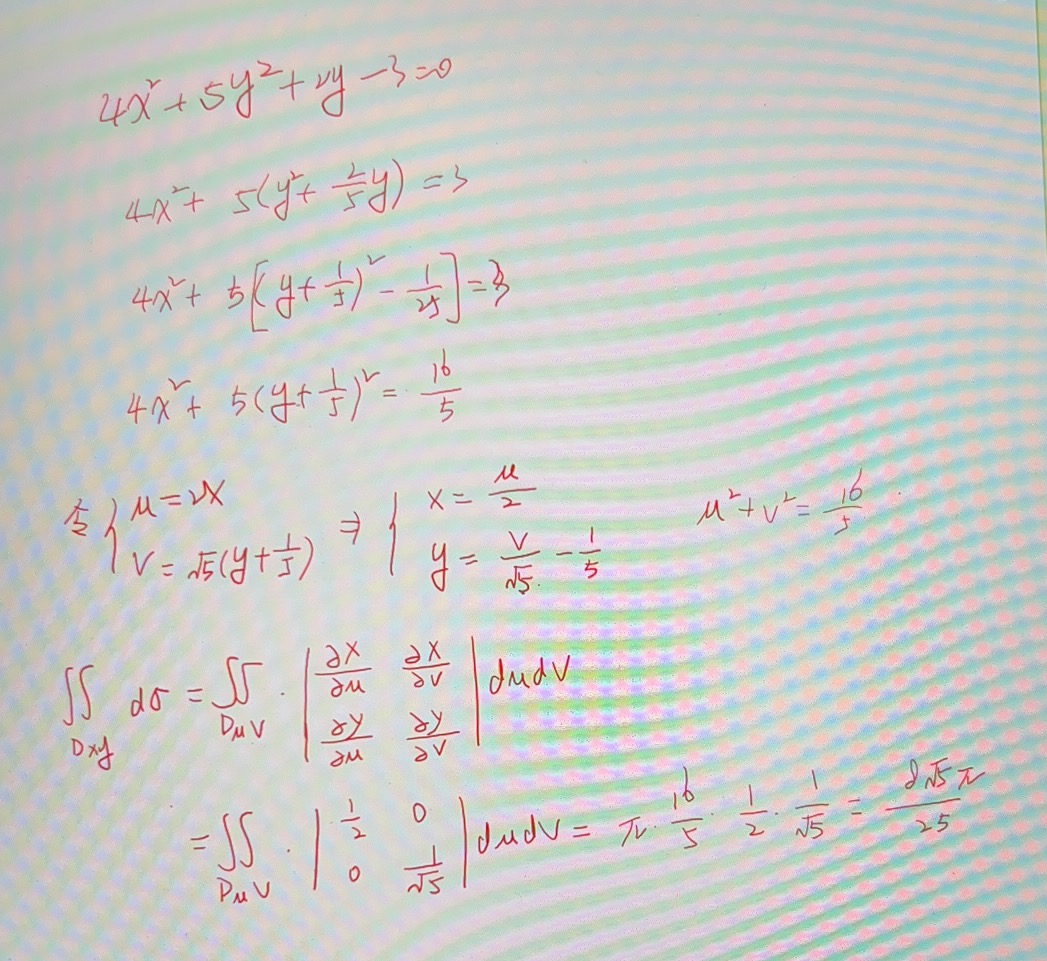 4x² + 5y² + 2y − 3 = 0
4x² + 5(y² + 2/5 y) = 3
4x² + 5[(y + 1/5)² − 1/25] = 3
4x² + 5(y + 1/5)² = 16/5
令 { μ = 2x, v = √5(y + 1/5) ⇒ { x = μ/2, y = v/√5 − 1/5    μ² + v² = 16/5
∬_{Dxy} dσ = ∬_{Dμv} · | ∂x/∂μ  ∂x/∂v ; ∂y/∂μ  ∂y/∂v | dμdv
= ∬_{Dμv} · | 1/2  0 ; 0  1/√5 | dμdv = π · 16/5 · 1/2 · 1/√5 = 8√5π/25